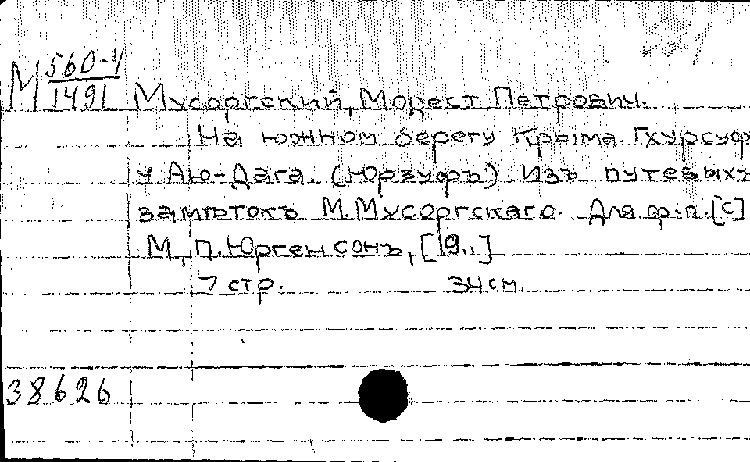 М 560-У
1491
Мусоргский, Модест Петрович.
На южном берегу Крыма. Гхурсуф
у Аю-Дага. (Юрзуфъ) Изъ путевыхъ
замѣтокъ М. Мусоргскаго. Для ф.п. [с]
М., П. Юргенсонъ, [19..]
7 стр. 34 см.
38626